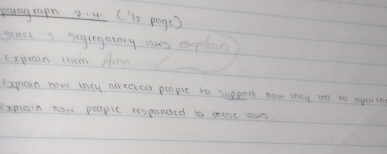 paragraph 2-4 (1/2 page)
select 3 segregatory laws explain
Explain them
Explain how they affected people to support how they led to aparthe
Explain how people responded to these laws